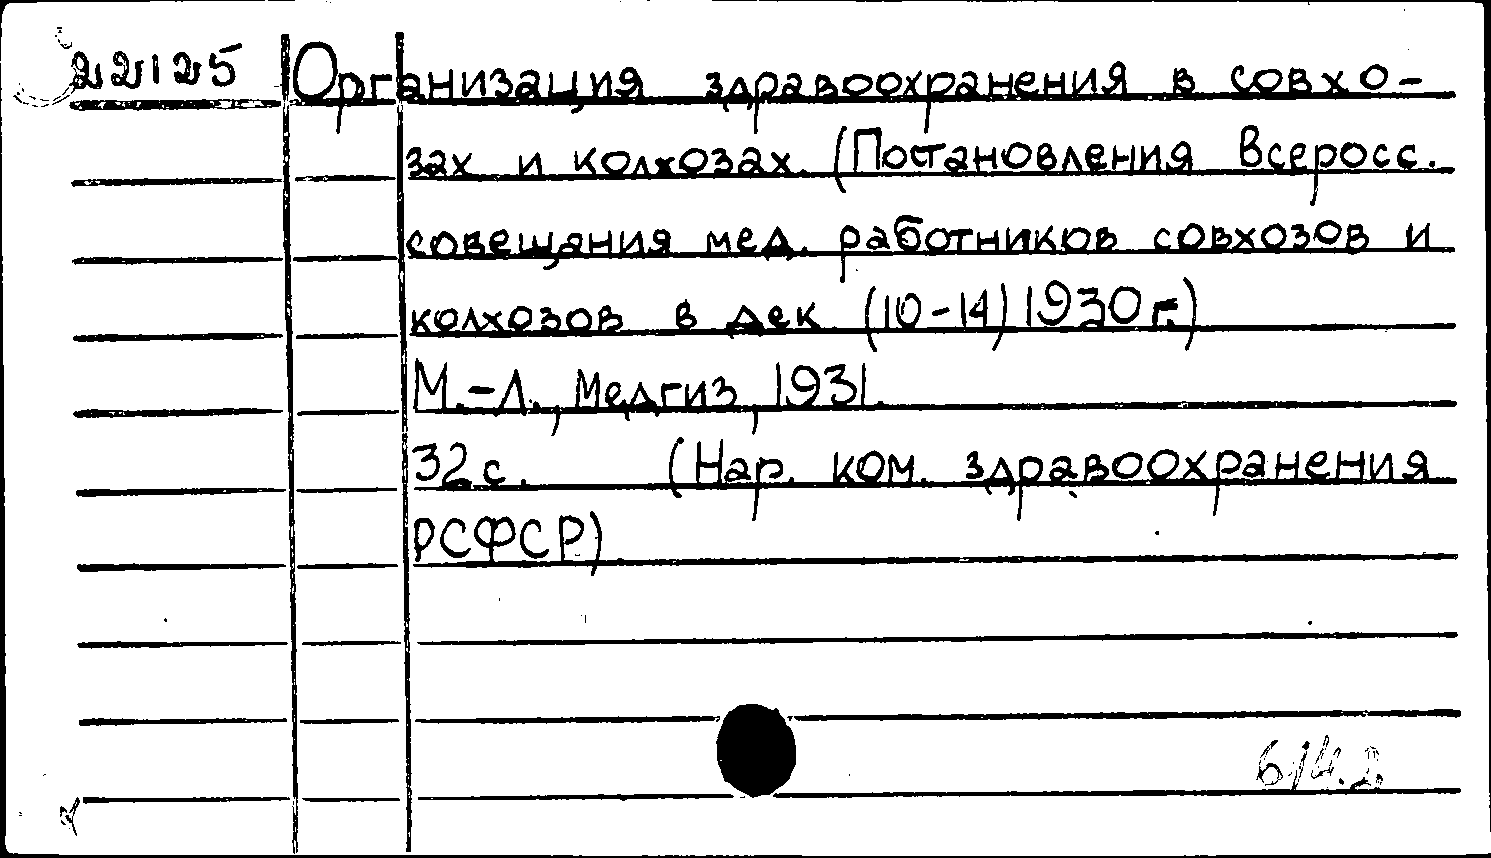 22125 Организация здравоохранения в совхо-
зах и колхозах. (Постановления Всеросс.
совещания мед. работников совхозов и
колхозов в дек (10-14) 1930 г.)
М.-Л., Медгиз, 1931.
32 с. (Нар. ком. здравоохранения
РСФСР)
614.2